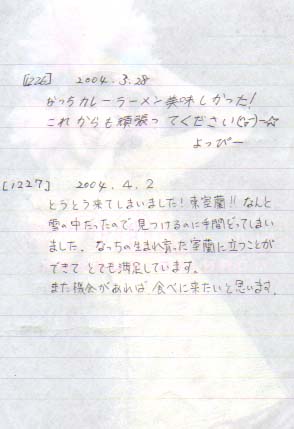 [1226] 2004.3.28
なっちカレーラーメン美味しかった!
これからも頑張ってください(^▽^)ー☆
よっぴー
[1227] 2004.4.2
とうとう来てしまいました!東室蘭!!なんと
雪の中だったので見つけるのに手間どってしまい
ました。なっちの生まれ育った室蘭に立つことが
できてとても満足しています。
また機会があれば食べに来たいと思います。